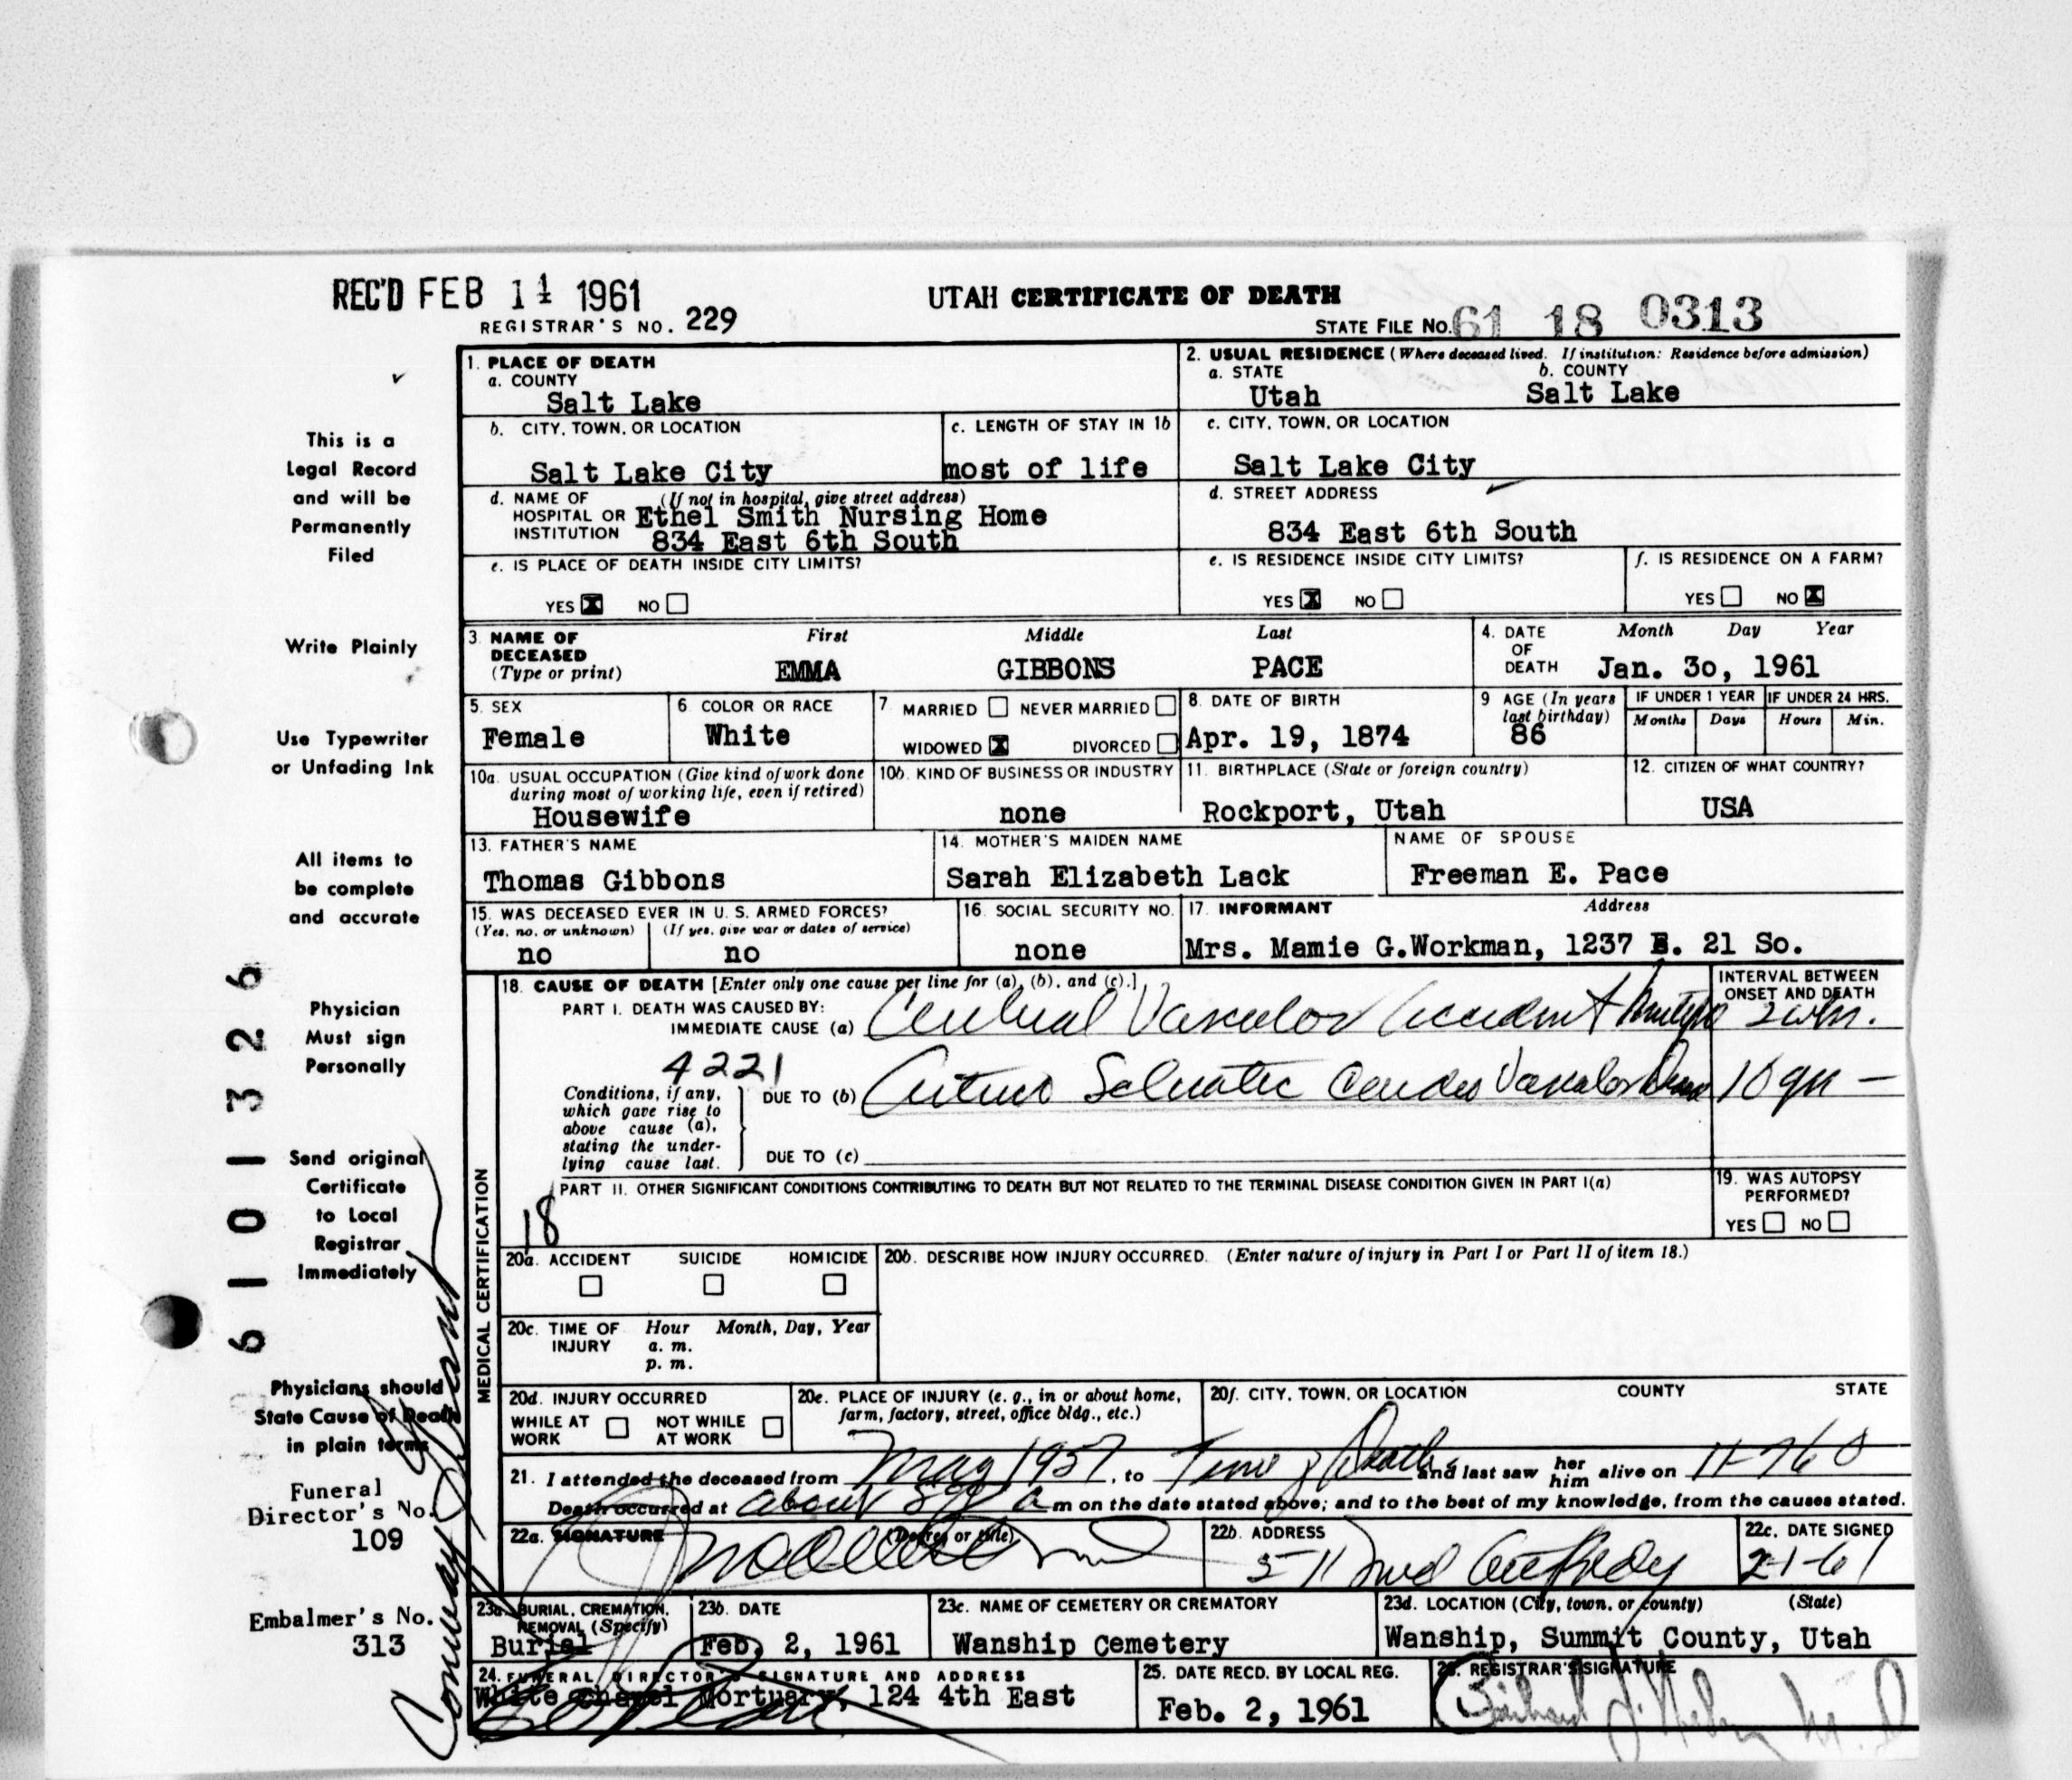 REC'D FEB 11 1961
UTAH CERTIFICATE OF DEATH
REGISTRAR'S NO. 229
STATE FILE NO. 61 18 0313
1. PLACE OF DEATH
a. COUNTY
Salt Lake
2. USUAL RESIDENCE (Where deceased lived. If institution: Residence before admission)
a. STATE b. COUNTY
Utah Salt Lake
b. CITY, TOWN, OR LOCATION
Salt Lake City
c. LENGTH OF STAY IN 1b
most of life
c. CITY, TOWN, OR LOCATION
Salt Lake City
d. NAME OF (If not in hospital, give street address)
HOSPITAL OR Ethel Smith Nursing Home
INSTITUTION 834 East 6th South
d. STREET ADDRESS
834 East 6th South
e. IS PLACE OF DEATH INSIDE CITY LIMITS?
YES X NO
e. IS RESIDENCE INSIDE CITY LIMITS?
YES X NO
f. IS RESIDENCE ON A FARM?
YES NO X
3. NAME OF DECEASED (Type or print)
First Middle Last
EMMA GIBBONS PACE
4. DATE OF DEATH
Month Day Year
Jan. 30, 1961
5. SEX
Female
6. COLOR OR RACE
White
7. MARRIED NEVER MARRIED
WIDOWED X DIVORCED
8. DATE OF BIRTH
Apr. 19, 1874
9 AGE (In years last birthday)
86
IF UNDER 1 YEAR IF UNDER 24 HRS.
Months Days Hours Min.
10a. USUAL OCCUPATION (Give kind of work done
during most of working life, even if retired)
Housewife
10b. KIND OF BUSINESS OR INDUSTRY
none
11. BIRTHPLACE (State or foreign country)
Rockport, Utah
12. CITIZEN OF WHAT COUNTRY?
USA
13. FATHER'S NAME
Thomas Gibbons
14. MOTHER'S MAIDEN NAME
Sarah Elizabeth Lack
NAME OF SPOUSE
Freeman E. Pace
15. WAS DECEASED EVER IN U. S. ARMED FORCES?
(Yes, no, or unknown) (If yes, give war or dates of service)
no no
16. SOCIAL SECURITY NO.
none
17. INFORMANT Address
Mrs. Mamie G.Workman, 1237 E. 21 So.
MEDICAL CERTIFICATION
18. CAUSE OF DEATH [Enter only one cause per line for (a), (b), and (c).]
PART I. DEATH WAS CAUSED BY:
IMMEDIATE CAUSE (a) Cerebral Vascular Accident
INTERVAL BETWEEN
ONSET AND DEATH
4221
Conditions, if any,
which gave rise to
above cause (a),
stating the under-
lying cause last.
DUE TO (b) Arterio Sclerotic Cardio Vascular
10 yrs —
DUE TO (c)
PART II. OTHER SIGNIFICANT CONDITIONS CONTRIBUTING TO DEATH BUT NOT RELATED TO THE TERMINAL DISEASE CONDITION GIVEN IN PART I(a)
18
19. WAS AUTOPSY
PERFORMED?
YES NO
20a. ACCIDENT SUICIDE HOMICIDE
20b. DESCRIBE HOW INJURY OCCURRED. (Enter nature of injury in Part I or Part II of item 18.)
20c. TIME OF INJURY
Hour Month, Day, Year
a. m.
p. m.
20d. INJURY OCCURRED
WHILE AT WORK NOT WHILE AT WORK
20e. PLACE OF INJURY (e. g., in or about home,
farm, factory, street, office bldg., etc.)
20f. CITY, TOWN, OR LOCATION COUNTY STATE
21. I attended the deceased from May 1957, to Time of Death and last saw her him alive on
Death occurred at about m on the date stated above; and to the best of my knowledge, from the causes stated.
22a. SIGNATURE (Degree or title)
22b. ADDRESS
22c. DATE SIGNED
2-1-61
23a. BURIAL, CREMATION,
REMOVAL (Specify)
Burial
23b. DATE
Feb. 2, 1961
23c. NAME OF CEMETERY OR CREMATORY
Wanship Cemetery
23d. LOCATION (City, town, or county) (State)
Wanship, Summit County, Utah
24. FUNERAL DIRECTOR'S SIGNATURE AND ADDRESS
White Chapel Mortuary, 124 4th East
25. DATE RECD. BY LOCAL REG.
Feb. 2, 1961
26. REGISTRAR'S SIGNATURE
This is a
Legal Record
and will be
Permanently
Filed
Write Plainly
Use Typewriter
or Unfading Ink
All items to
be complete
and accurate
Physician
Must sign
Personally
Send original
Certificate
to Local
Registrar
Immediately
Physicians should
State Cause of Death
in plain terms
Funeral
Director's No.
109
Embalmer's No.
313
6101326